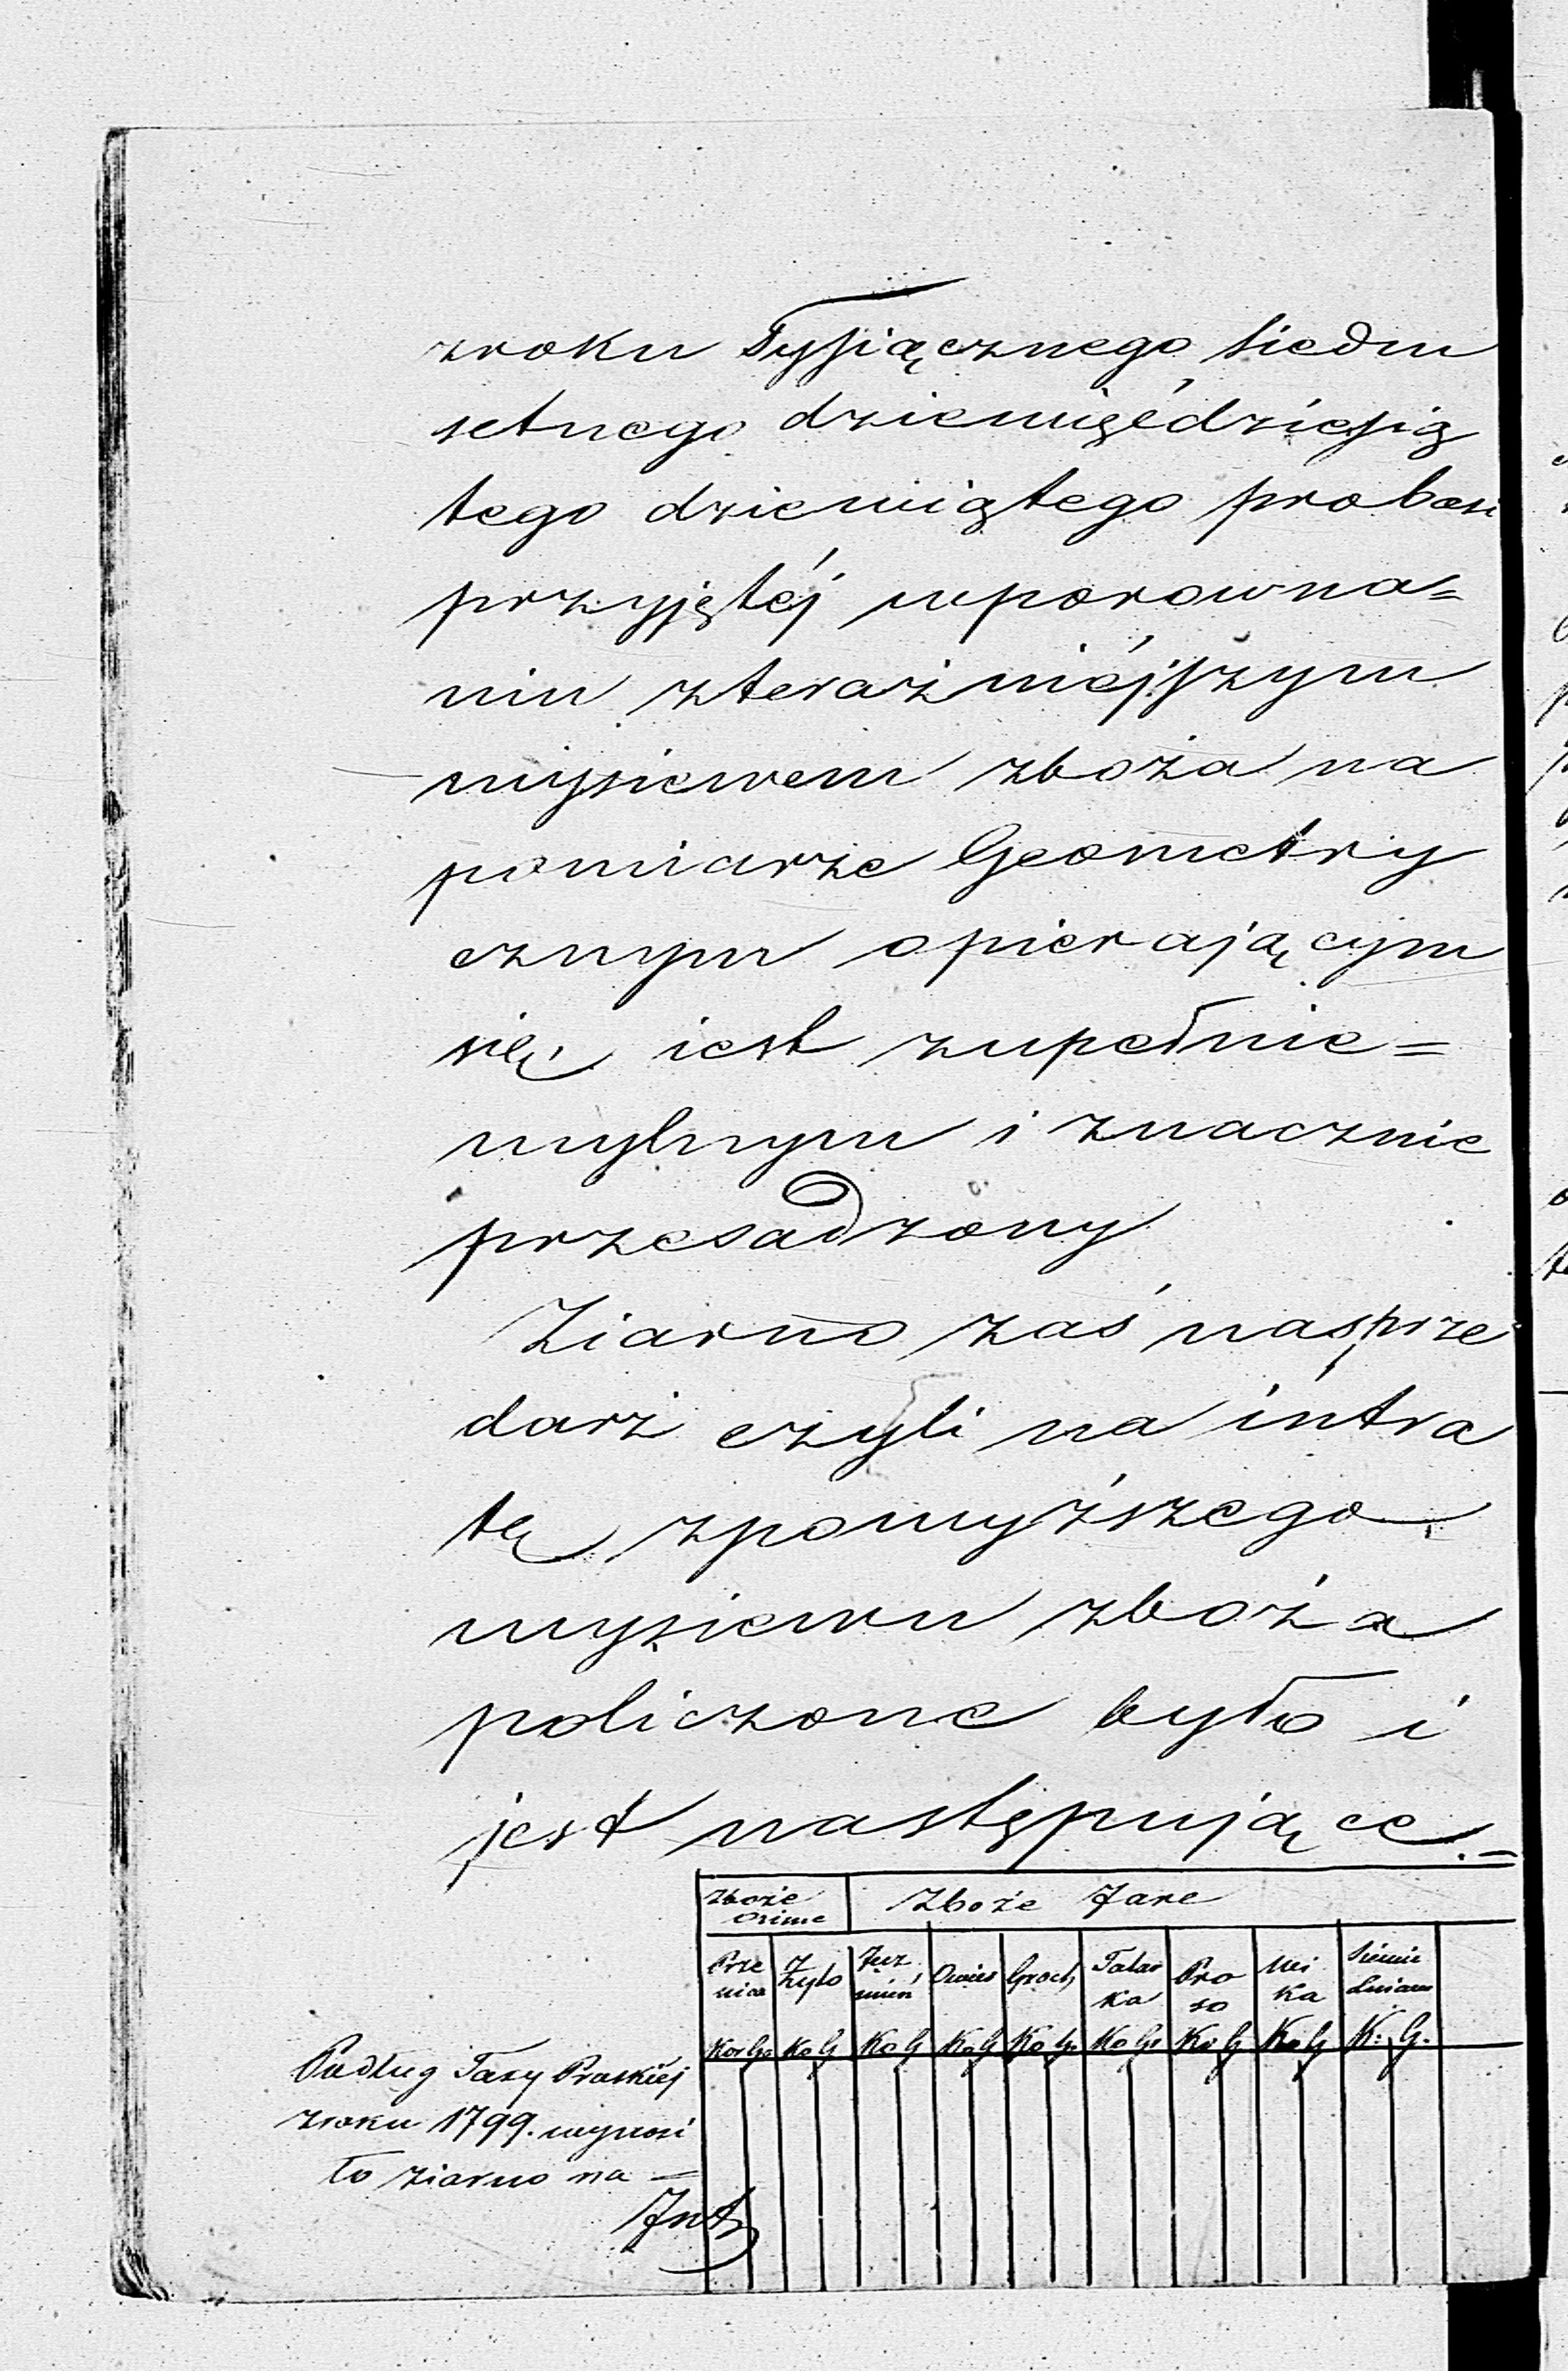 zroku Tysiącznego siedm
setnego dziewięćdziesią
tego dziewiątego
przyjętéj wporowna=
niu zteraźniéjszym
wysiewem zboża na
pomiarze Geometry
cznym opierającym
się iest zupełnie=
mylnym i znacznie
przesadzony
Ziarno zaś nasprze
darz czyli na intra
tę zpowyższego
wysiewu zboża
policzone było i
jest następujące.=
Zboże Ozime Zboże Jare
Psze nica Żyto Jęcz mień Owies Groch Tatar ka Pro so Wi ka Siemie Lniane
Kor Ga Ko G Ko G Ko G Ko G Ko Gr Ko G Ko G K. G.
Podług Taxy Pruskiéj
zroku 1799. wynosi
ło ziarno na =
Int